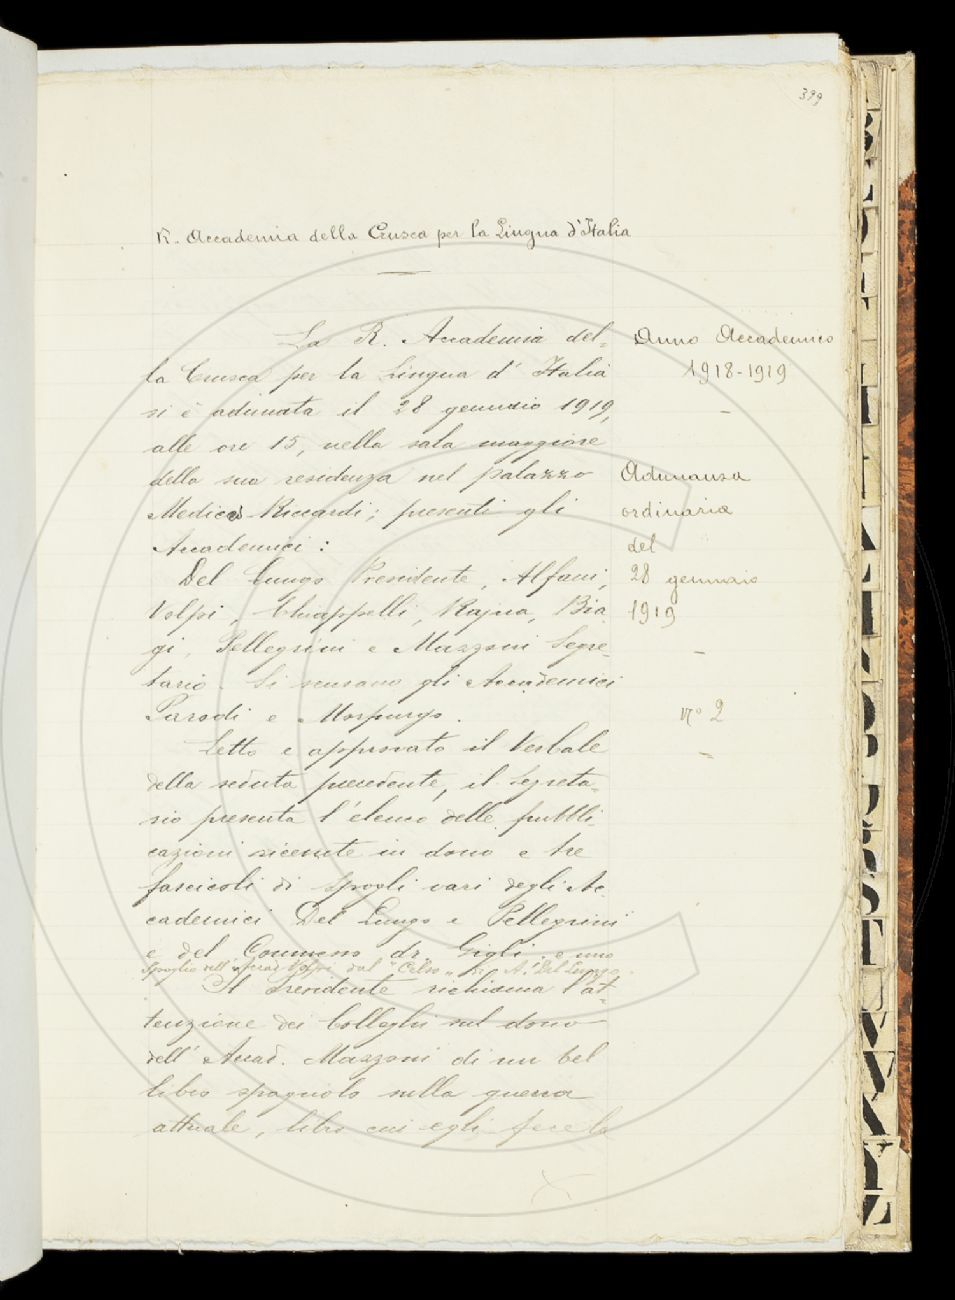 399
R. Accademia della Crusca per la Lingua d'Italia
La R. Accademia del-
la Crusca per la Lingua d'Italia
si è adunata il 28 gennaio 1919,
alle ore 15, nella sala maggiore
della sua residenza nel palazzo
Mediceo Riccardi; presenti gli
Accademici:
Del Lungo Presidente, Alfani,
Volpi, Chiappelli, Rajna, Bia
gi, Pellegrini e Mazzoni Segre-
tario. Si scusano gli Accademici
Parodi e Morpurgo.
Letto e approvato il Verbale
della seduta precedente, il Segreta-
rio presenta l'elenco delle pubbli-
cazioni ricevute in dono e tre
fascicoli di Spogli vari degli Ac-
cademici Del Lungo e Pellegrini
e del Commesso dr. Gigli e uno
Spoglio dell'Accad. Volpi dal "Celso" di A. Del Lungo.
Il Presidente richiama l'at-
tenzione dei Colleghi sul dono
dell'Accad. Mazzoni di un bel
libro spagnolo sulla guerra
attuale, libro cui egli fece la
Anno Accademico
1918-1919
Adunanza
ordinaria
del
28 gennaio
1919
N° 2